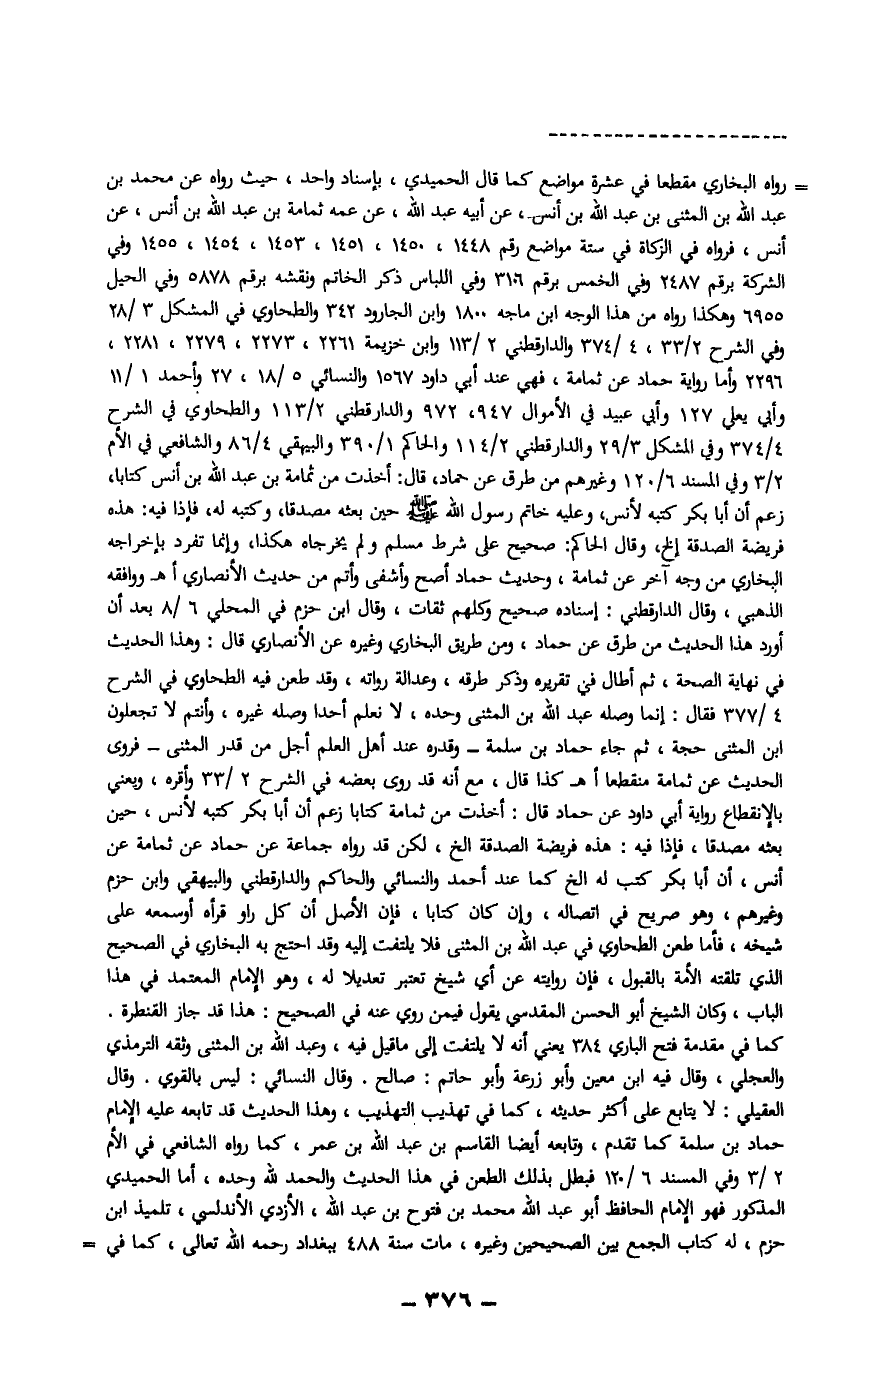 = رواه البخاري مقطعا في عشرة مواضع كما قال الحميدي ، بإسناد واحد ، حيث رواه عن محمد بن
عبد الله بن المثنى بن عبد الله بن أنس ، عن أبيه عبد الله ، عن عمه ثمامة بن عبد الله بن أنس ، عن
أنس ، فرواه في الزكاة في ستة مواضع رقم ١٤٤٨ ، ١٤٥٠ ، ١٤٥١ ، ١٤٥٣ ، ١٤٥٤ ، ١٤٥٥ وفي
الشركة برقم ٢٤٨٧ وفي الخمس برقم ٣١٠٦ وفي اللباس ذكر الخاتم ونقشه برقم ٥٨٧٨ وفي الحيل
٦٩٥٥ وهكذا رواه من هذا الوجه ابن ماجه ١٨٠٠ وابن الجارود ٣٤٢ والطحاوي في المشكل ٣ /٢٨
وفي الشرح ٣٣/٢ ، ٤ /٣٧٤ والدارقطني ٢ /١١٣ وابن خزيمة ٢٢٦١ ، ٢٢٧٣ ، ٢٢٧٩ ، ٢٢٨١ ،
٢٢٩٦ وأما رواية حماد عن ثمامة ، فهي عند أبي داود ١٥٦٧ والنسائي ٥ /١٨ ، ٢٧ وأحمد ١ /١١
وأبي يعلي ١٢٧ وأبي عبيد في الأموال ٩٤٧، ٩٧٢ والدارقطني ١١٣/٢ والطحاوي في الشرح
٣٧٤/٤ وفي المشكل ٢٩/٣ والدارقطني ١١٤/٢ والحاكم ٣٩٠/١ والبيهقي ٨٦/٤ والشافعي في الأم
٣/٢ وفي المسند ١٢٠/٦ وغيرهم من طرق عن حماد، قال: أخذت من ثمامة بن عبد الله بن أنس كتابا،
زعم أن أبا بكر كتبه لأنس، وعليه خاتم رسول الله ﷺ حين بعثه مصدقا، وكتبه له، فإذا فيه: هذه
فريضة الصدقة إلخ، وقال الحاكم: صحيح على شرط مسلم و لم يخرجاه هكذا، وإنما تفرد بإخراجه
البخاري من وجه آخر عن ثمامة ، وحديث حماد أصح وأشفى وأتم من حديث الأنصاري أ هـ ووافقه
الذهبي ، وقال الدارقطني : إسناده صحيح وكلهم ثقات ، وقال ابن حزم في المحلي ٦ /٨ بعد أن
أورد هذا الحديث من طرق عن حماد ، ومن طريق البخاري وغيره عن الأنصاري قال : وهذا الحديث
في نهاية الصحة ، ثم أطال في تقريره وذكر طرقه ، وعدالة رواته ، وقد طعن فيه الطحاوي في الشرح
٤ /٣٧٧ فقال : إنما وصله عبد الله بن المثنى وحده ، لا نعلم أحدا وصله غيره ، وأنتم لا تجعلون
ابن المثنى حجة ، ثم جاء حماد بن سلمة – وقدره عند أهل العلم أجل من قدر المثنى – فروى
الحديث عن ثمامة منقطعا أ هـ كذا قال ، مع أنه قد روى بعضه في الشرح ٢ /٣٣ وأقره ، ويعني
بالإنقطاع رواية أبي داود عن حماد قال : أخذت من ثمامة كتابا زعم أن أبا بكر كتبه لأنس ، حين
بعثه مصدقا ، فإذا فيه : هذه فريضة الصدقة الخ ، لكن قد رواه جماعة عن حماد عن ثمامة عن
أنس ، أن أبا بكر كتب له الخ كما عند أحمد والنسائي والحاكم والدارقطني والبيهقي وابن حزم
وغيرهم ، وهو صريح في اتصاله ، وإن كان كتابا ، فإن الأصل أن كل راو قرأه أوسمعه على
شيخه ، فأما طعن الطحاوي في عبد الله بن المثنى فلا يلتفت إليه وقد احتج به البخاري في الصحيح
الذي تلقته الأمة بالقبول ، فإن روايته عن أي شيخ تعتبر تعديلا له ، وهو الإمام المعتمد في هذا
الباب ، وكان الشيخ أبو الحسن المقدسي يقول فيمن روي عنه في الصحيح : هذا قد جاز القنطرة .
كما في مقدمة فتح الباري ٣٨٤ يعني أنه لا يلتفت إلى ماقيل فيه ، وعبد الله بن المثنى وثقه الترمذي
والعجلي ، وقال فيه ابن معين وأبو زرعة وأبو حاتم : صالح . وقال النسائي : ليس بالقوي . وقال
العقيلي : لا يتابع على أكثر حديثه ، كما في تهذيب التهذيب ، وهذا الحديث قد تابعه عليه الإمام
حماد بن سلمة كما تقدم ، وتابعه أيضا القاسم بن عبد الله بن عمر ، كما رواه الشافعي في الأم
٢ /٣ وفي المسند ٦ /١٢٠ فبطل بذلك الطعن في هذا الحديث والحمد لله وحده ، أما الحميدي
المذكور فهو الإمام الحافظ أبو عبد الله محمد بن فتوح بن عبد الله ، الأزدي الأندلسي ، تلميذ ابن
حزم ، له كتاب الجمع بين الصحيحين وغيره ، مات سنة ٤٨٨ ببغداد رحمه الله تعالى ، كما في =
– ٣٧٦ –